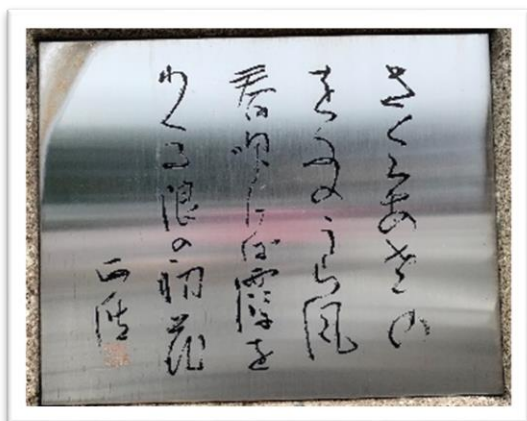 さくらあさの
をふのうら風
春吹けば霞を
わくる浪の初花